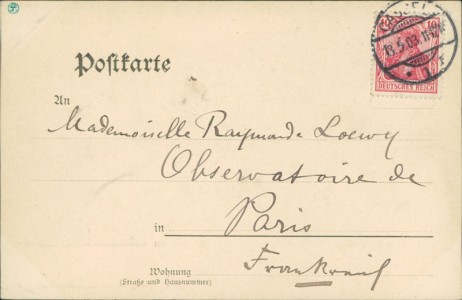 CASSEL
13.5.03. 11-12V
10
DEUTSCHES REICH
Postkarte
An
Mademoiselle Raymonde Loewy
Observatoire de
in Paris
Wohnung
(Straße und Hausnummer)
Frankreich